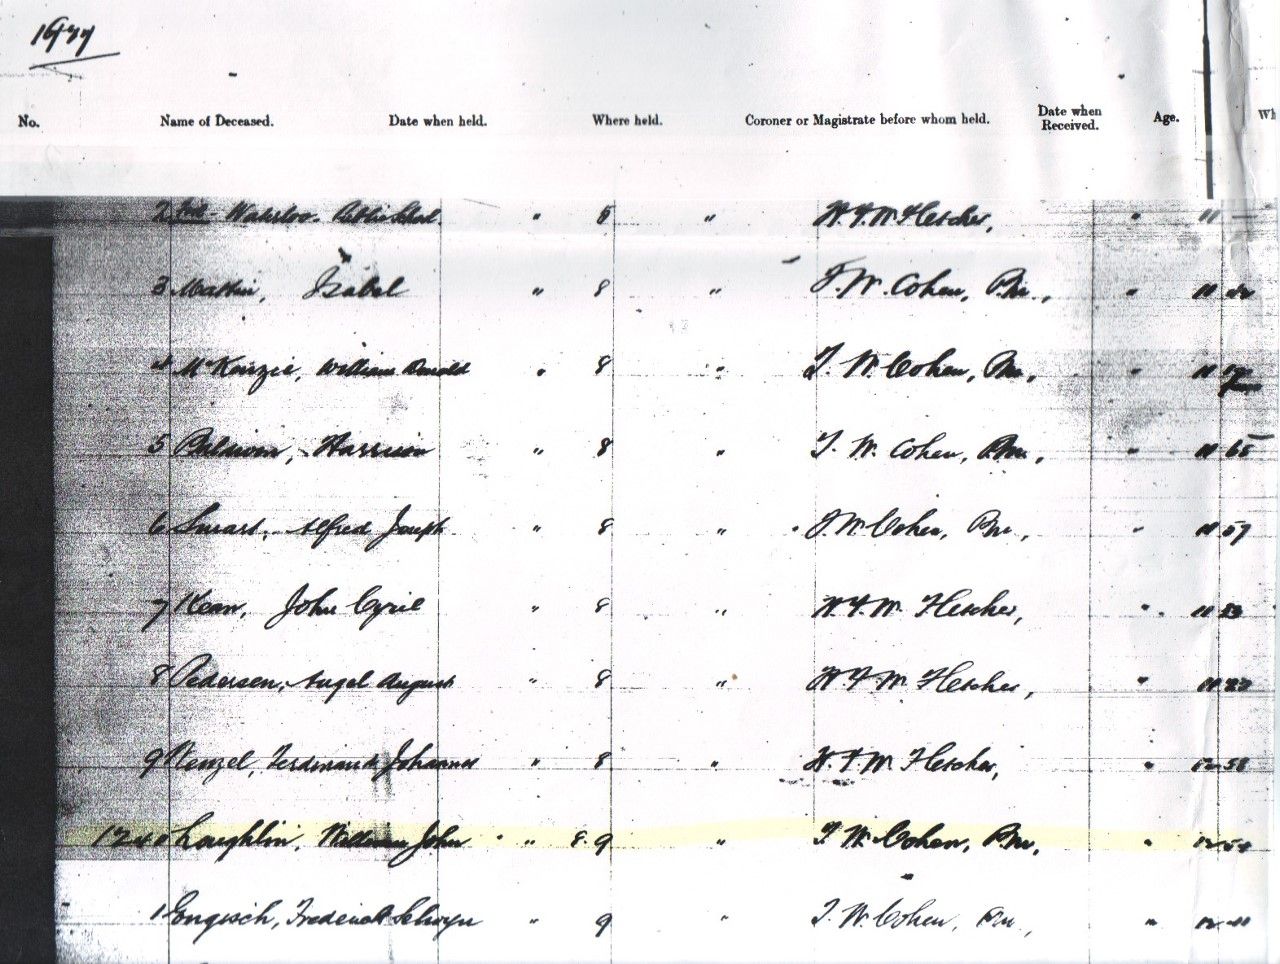 No. Name of Deceased. Date when held. Where held. Coroner or Magistrate before whom held. Date when Received. Age. Wh
2 Waterloo " 5 " W. F. W. Fletcher, " 11
3 Isabel " 8 " T. W. Cohen, P.M., " 11
4 McKenzie, William Donald " 8 " T. W. Cohen, P.M., " 11
5 Harrison " 8 " T. W. Cohen, P.M., " 11 65
6 Smart, Alfred Joseph " 8 " T. W. Cohen, P.M., " 11 57
7 Kean, John Cyril " 8 " W. F. W. Fletcher, " 11 53
8 Pedersen, August " 8 " W. F. W. Fletcher, " 11
9 Wenzel, Ferdinand Johannes " 8 " W. F. W. Fletcher, " 12 58
1240 Loughlin, William John " 8. 9 " T. W. Cohen, P.M., " 12
1 Frederick Selwyn " 9 " T. W. Cohen, P.M., " 12